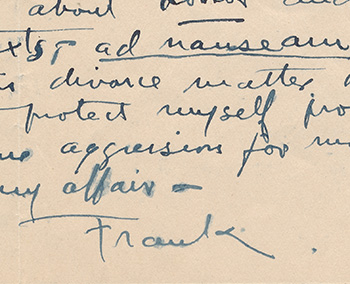 about and
ad nauseam
divorce matter
protect myself
aggression for
my affair –
Frank.